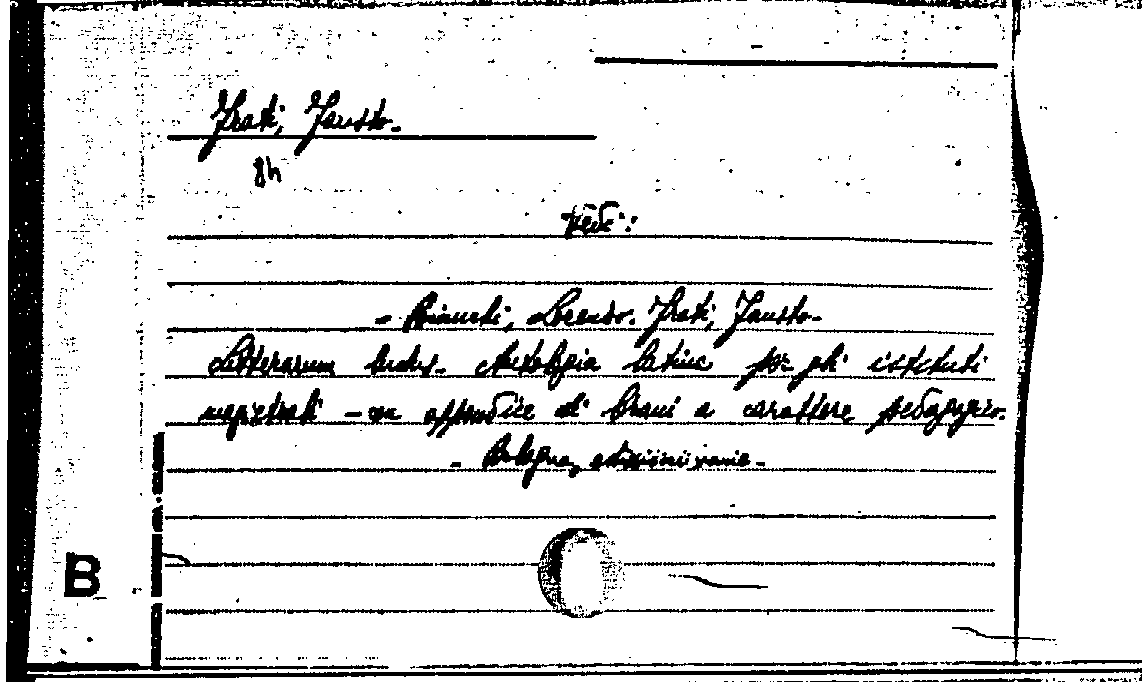 Frati, Fausto.
Vedi:
- Bianchi, Lorenzo. Frati, Fausto.
Litterarum ludus. Antologia latina per gli istituti
magistrali - con appendice di brani a carattere pedagogico.
- Bologna, edizioni varie -
B